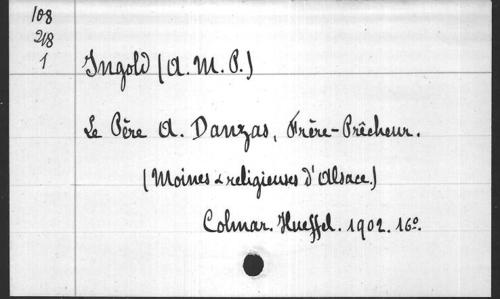 108
218
1
Ingold (A. M. P.)
Le Père A. Danzas, Frère-Prêcheur.
(Moines & religieuses d'Alsace.)
Colmar. Hueffel. 1902. 16º.